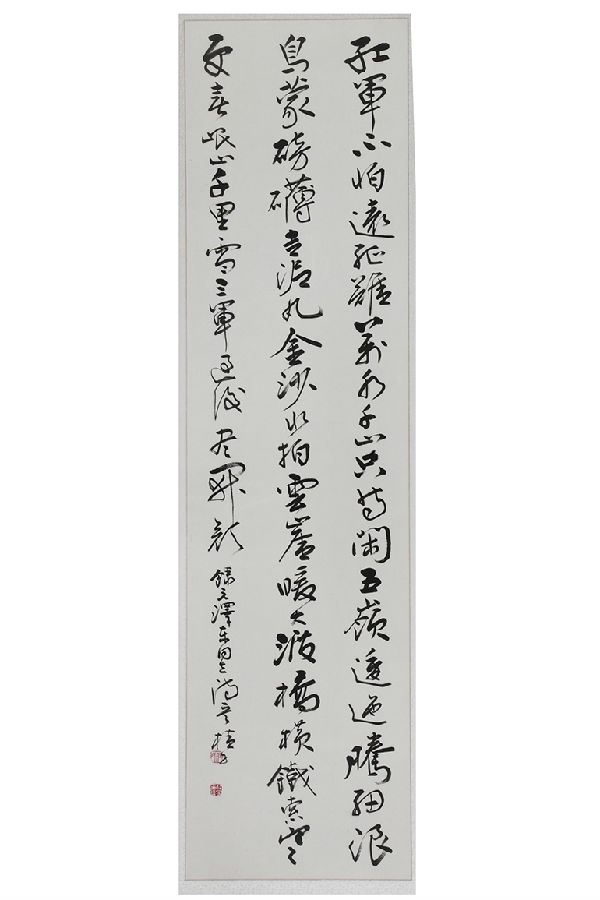 紅軍不怕遠征難萬水千山只等閑五嶺逶迤騰細浪
烏蒙磅礴走泥丸金沙水拍雲崖暖大渡橋橫鐵索寒
更喜岷山千里雪三軍過後盡開顏
錄毛澤東同志詩